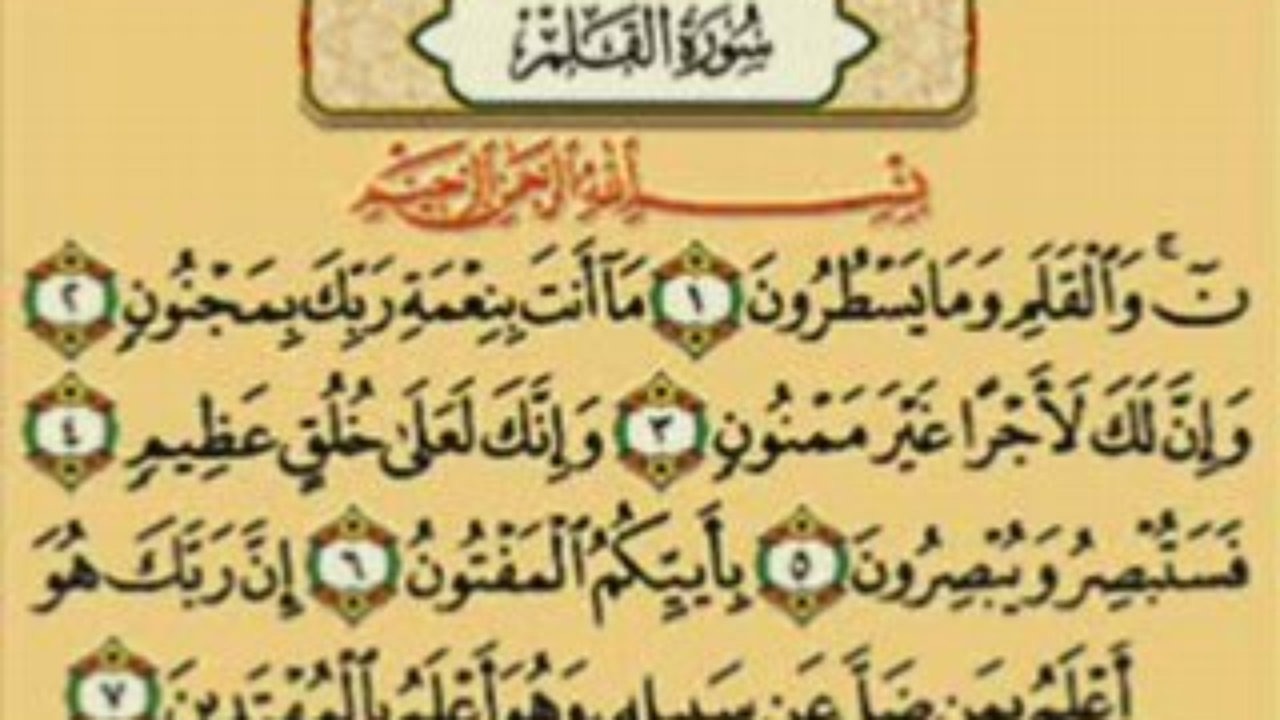 سُورَةُ القَلَمِ
بِسْمِ اللَّهِ الرَّحْمَٰنِ الرَّحِيمِ
نٓ ۚ وَٱلْقَلَمِ وَمَا يَسْطُرُونَ ١ مَآ أَنتَ بِنِعْمَةِ رَبِّكَ بِمَجْنُونٍ ٢
وَإِنَّ لَكَ لَأَجْرًا غَيْرَ مَمْنُونٍ ٣ وَإِنَّكَ لَعَلَىٰ خُلُقٍ عَظِيمٍ ٤
فَسَتُبْصِرُ وَيُبْصِرُونَ ٥ بِأَييِّكُمُ ٱلْمَفْتُونُ ٦ إِنَّ رَبَّكَ هُوَ
أَعْلَمُ بِمَن ضَلَّ عَن سَبِيلِهِۦ وَهُوَ أَعْلَمُ بِٱلْمُهْتَدِينَ ٧